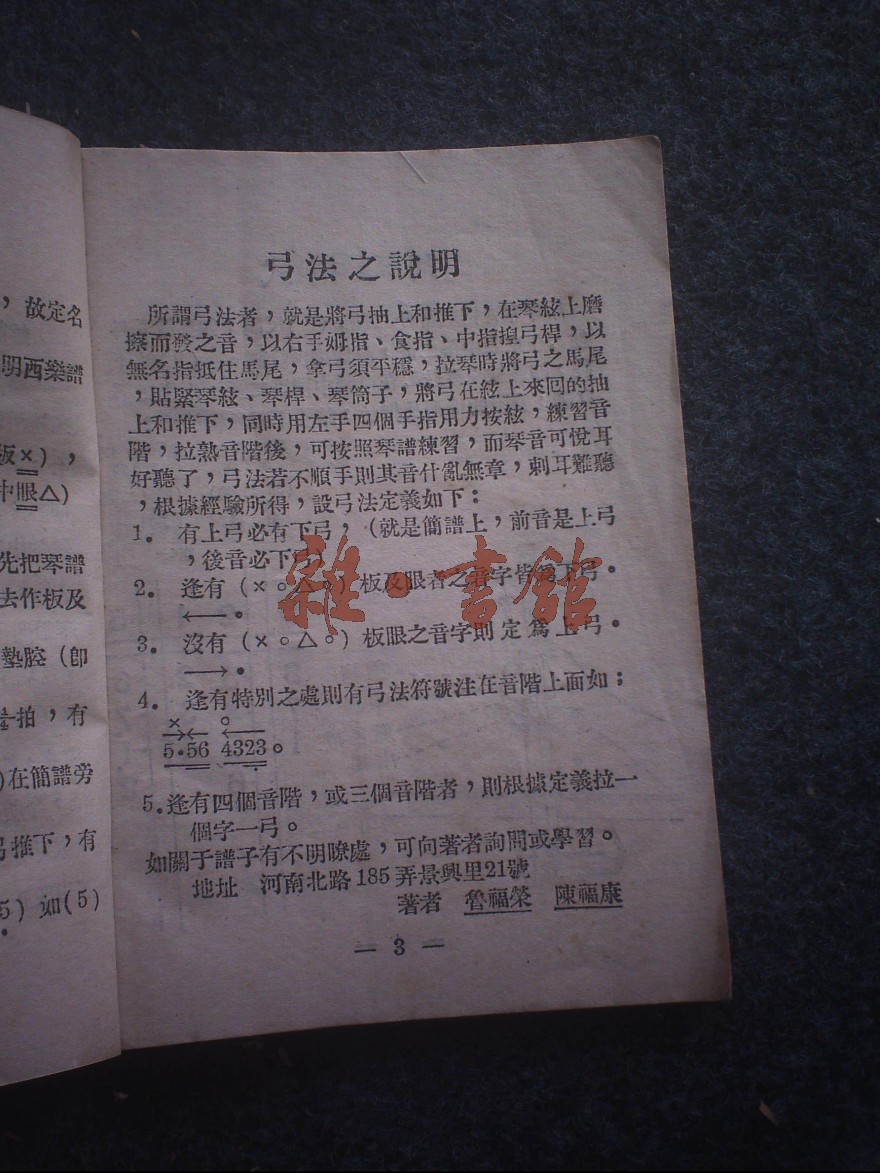 ，故定名
明西樂譜
板×），
中眼△）
先把琴譜
去作板及
墊腔（卽
拍，有
）在簡譜旁
弓推下，有
5）如(5)
弓法之說明
所謂弓法者，就是將弓抽上和推下，在琴絃上磨
擦而發之音，以右手姆指、食指、中指揑弓桿，以
無名指抵住馬尾，拿弓須平穩，拉琴時將弓之馬尾
，貼緊琴絃、琴桿、琴筒子，將弓在絃上來回的抽
上和推下，同時用左手四個手指用力按絃，練習音
階，拉熟音階後，可按照琴譜練習，而琴音可悅耳
好聽了，弓法若不順手則其音什亂無章，刺耳難聽
，根據經驗所得，設弓法定義如下：
1. 有上弓必有下弓，（就是簡譜上，前音是上弓
，後音必下弓）
2. 逢有（×○△○）板及眼者之音字皆爲下弓。
←—。
3. 沒有（×○△○）板眼之音字則定爲上弓。
—→。
4. 逢有特別之處則有弓法符號注在音階上面如；
× ○
→← ←—
5·56 4323。
5.逢有四個音階，或三個音階者，則根據定義拉一
個字一弓。
如關于譜子有不明瞭處，可向著者詢問或學習。
地址 河南北路185弄景興里21號
著者 魯福榮 陳福康
— 3 —
雜·書館